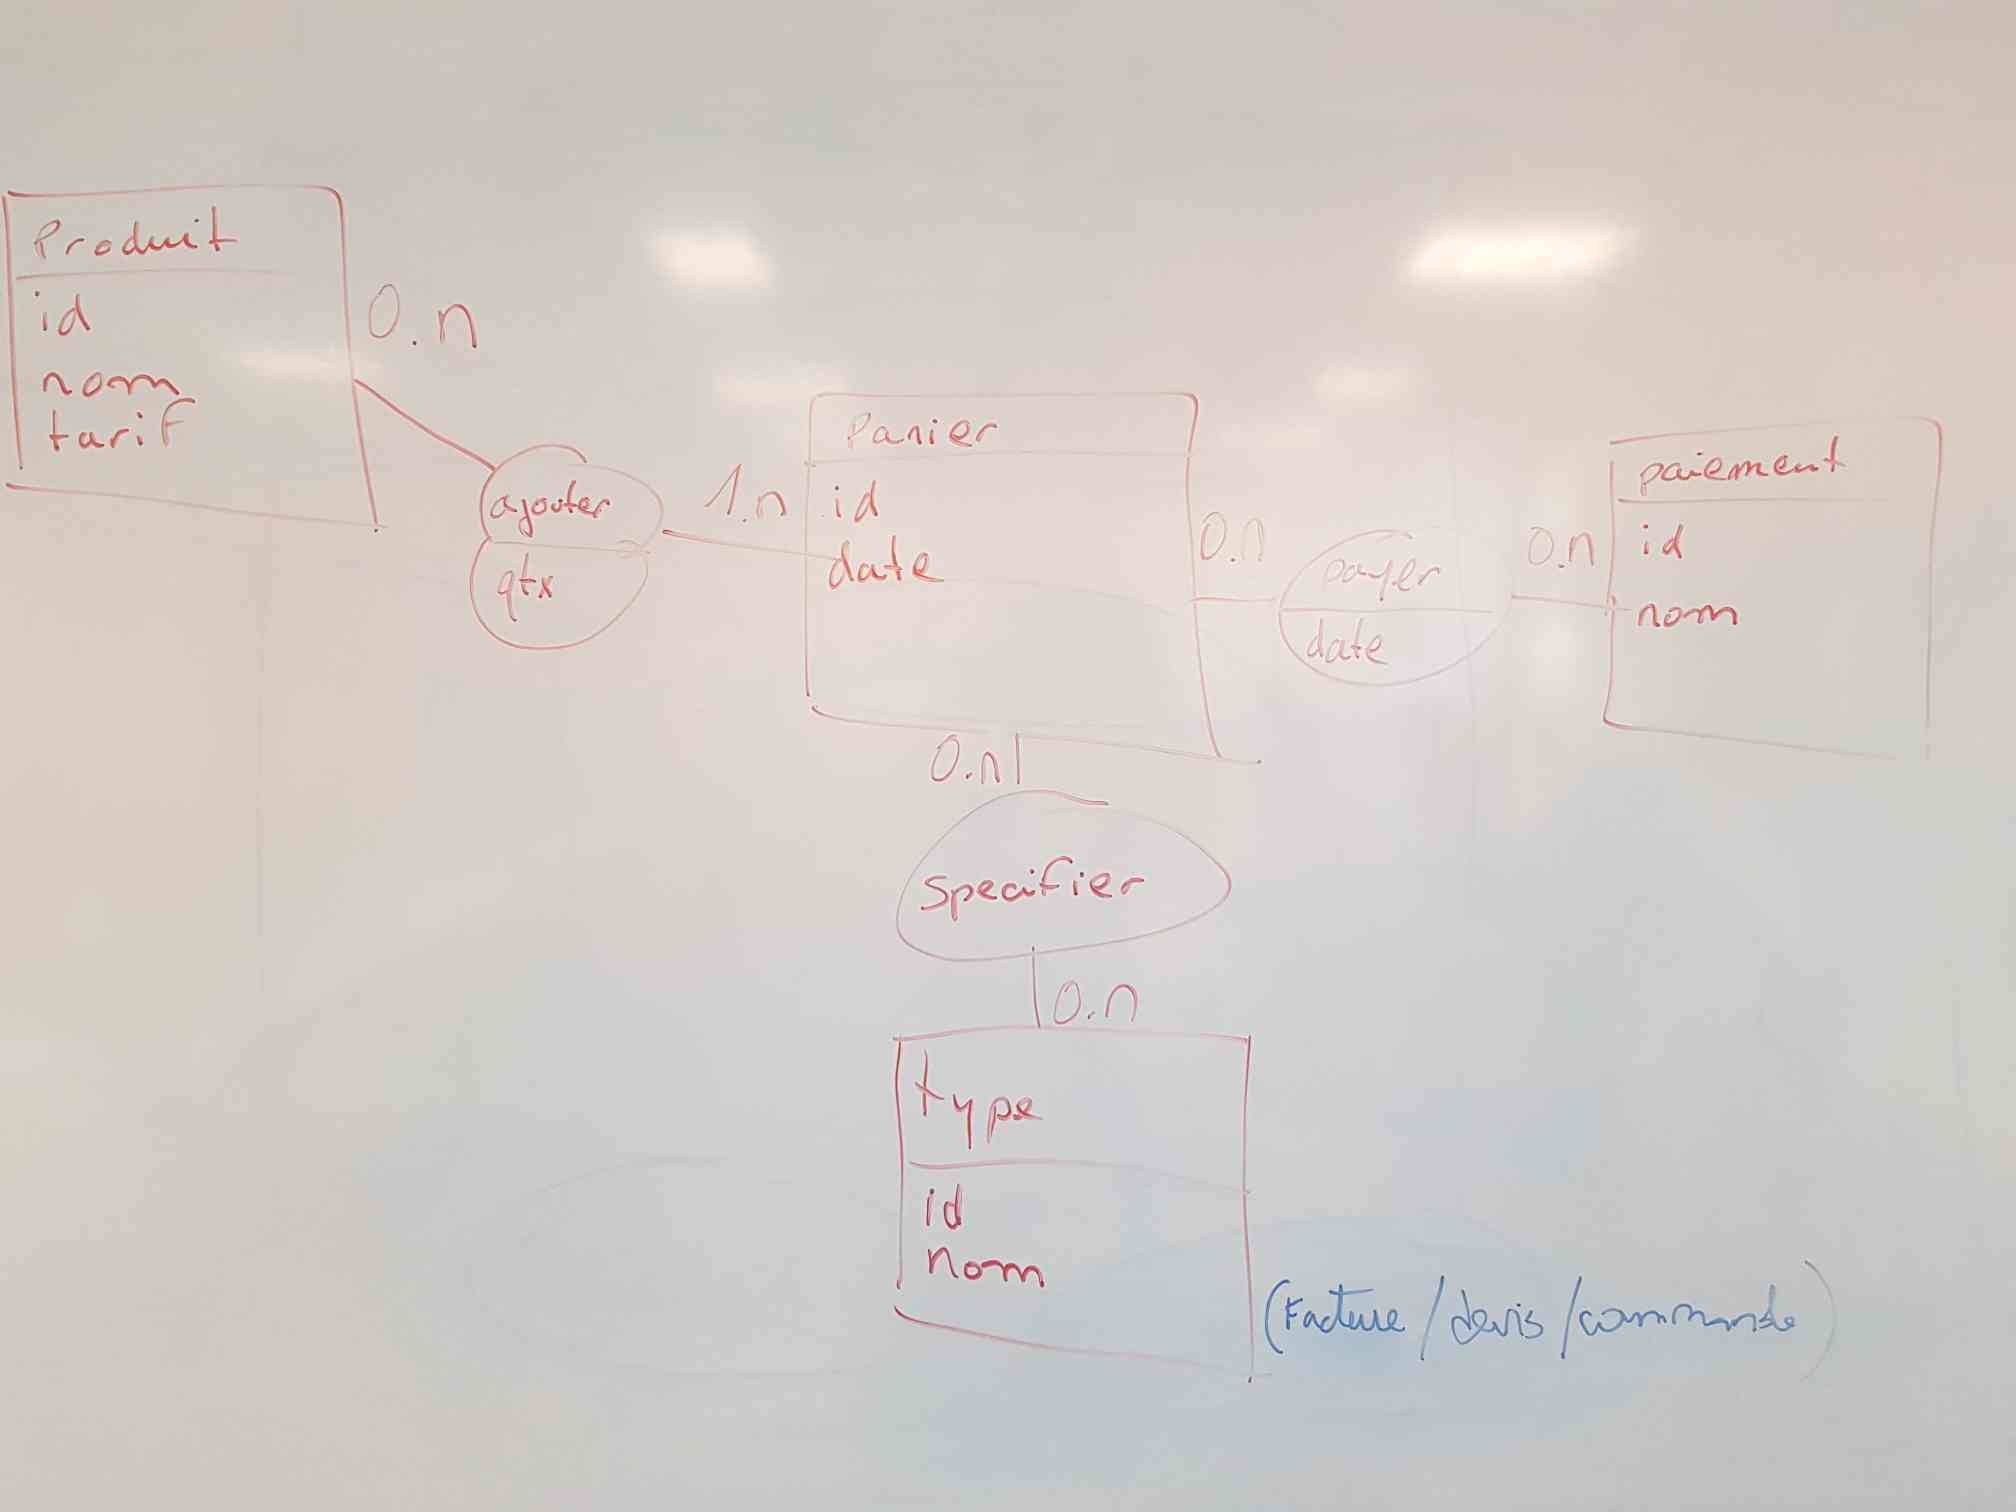 Produit
id
nom
tarif
0.n
ajouter
qtx
1.n
Panier
id
date
0.n
payer
date
0.n
paiement
id
nom
0.n
Specifier
0.n
type
id
nom
(Facture / devis / commande)